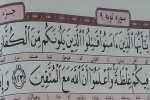 سورة توبة ٩
يَٰٓأَيُّهَا ٱلَّذِينَ ءَامَنُوا۟ قَٰتِلُوا۟ ٱلَّذِينَ يَلُونَكُم مِّنَ ٱلْكُفَّارِ
فِيكُمْ غِلْظَةً وَٱعْلَمُوٓا۟ أَنَّ ٱللَّهَ مَعَ ٱلْمُتَّقِينَ